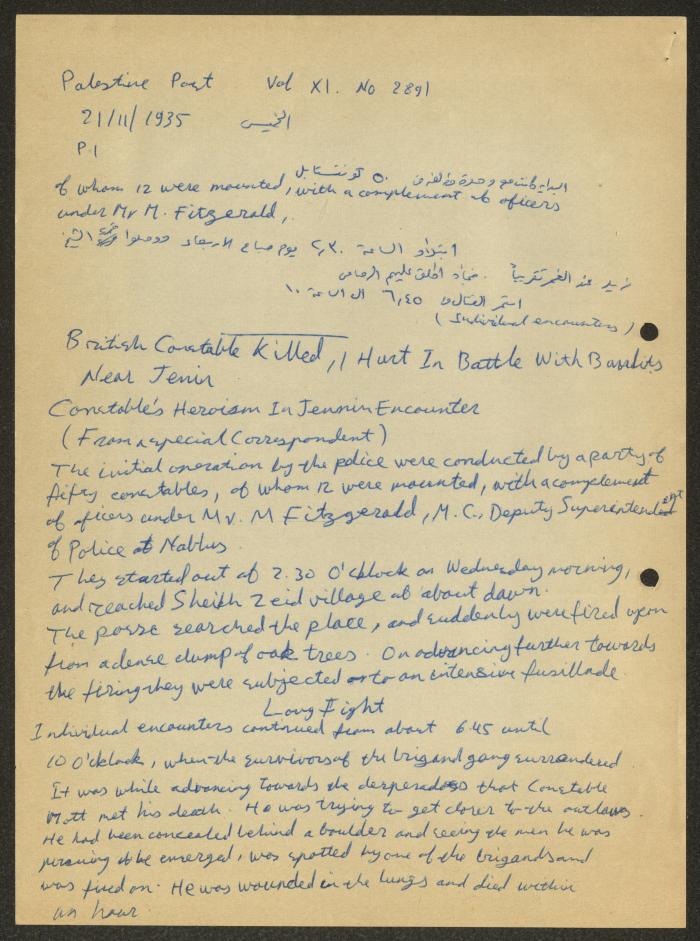 Palestine Post Vol XI. No 2891
21/11/1935 الخميس
P.1
٥٠ كونستابل
of whom 12 were mounted, with a complement of officers
under Mr M. Fitzgerald,.
ابتداء الساعة ٢,٣٠ يوم صباح الاربعاء ووصلوا الشيخ
زيد عند الفجر تقريباً . فجأة اطلق عليهم الرصاص
استمر القتال من ٦,٤٥ الى الساعة ١٠
(Individual encounters)
British Constable Killed, 1 Hurt In Battle With Bandits
Near Jenin
Constable's Heroism In Jennin Encounter
(From a special Correspondent)
The initial operation by the police were conducted by a party of
fifty constables, of whom 12 were mounted, with a complement
of oficers under Mr. M Fitzgerald, M.C., Deputy Superintendent
of Police at Nablus.
They started out at 2.30 O'cklock on Wednesday morning,
and reached Sheikh Zeid village at about dawn.
The posse searched the place, and suddenly were fired upon
from a dense clump of oak trees. On advancing further towards
the firing they were subjected to an intensive fusillade.
Long Fight
Individual encounters continued from about 6.45 until
10 O'cklock, when the survivors of the brigand gang surrendered
It was while advancing towards the desperados that Constable
Mott met his death. He was trying to get closer to the outlaws.
He had been concealed behind a boulder and seeing the men he was
pursuing emerged, was spotted by one of the brigands and
was fired on. He was wounded in the lungs and died within
an hour.